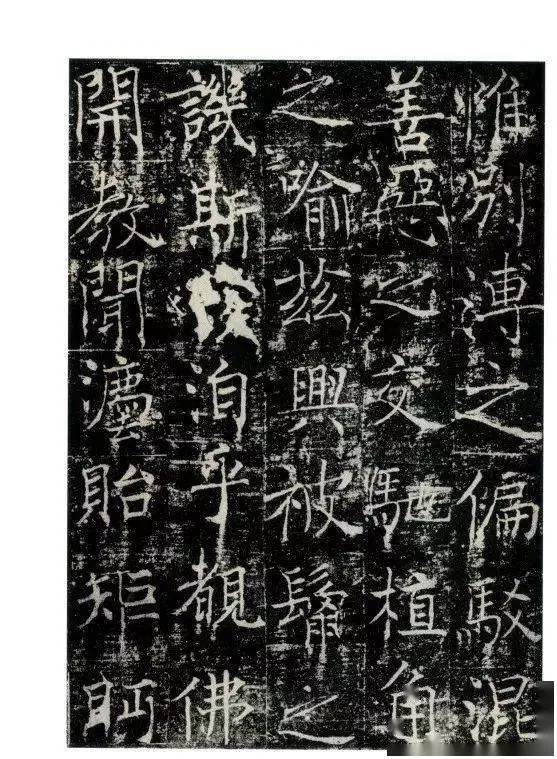 惟別漙之偏駁混
善惡之交馳植角
之喻茲興被髯之
譏斯洎乎覩佛
開教聞灋貽矩